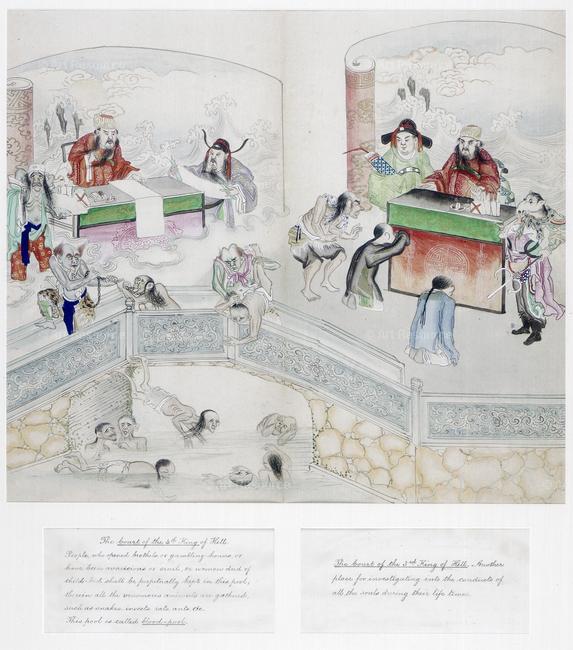 The Court of the 4th King of Hell.
People, who opened brothels or gambling houses, or
have been avaricious or cruel, or women died of
child-bed shall be perpetually kept in this pool,
therein all the venomous animals are gathered,
such as snakes, insects, rats, ants etc.
This pool is called blood-pool.
The Court of the 3rd King of Hell. Another
place for investigating into the conducts of
all the souls during their life times.